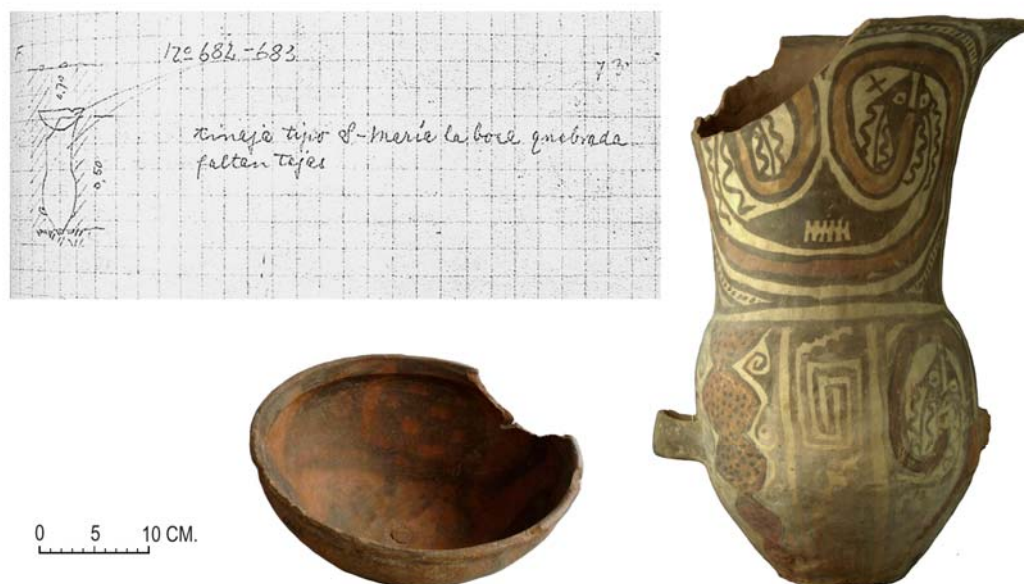 F.
Nº 682-683
y 3.
0,70
tinaja tipo S-María la boca quebrada
faltan tejas
0.50
0 5 10 CM.